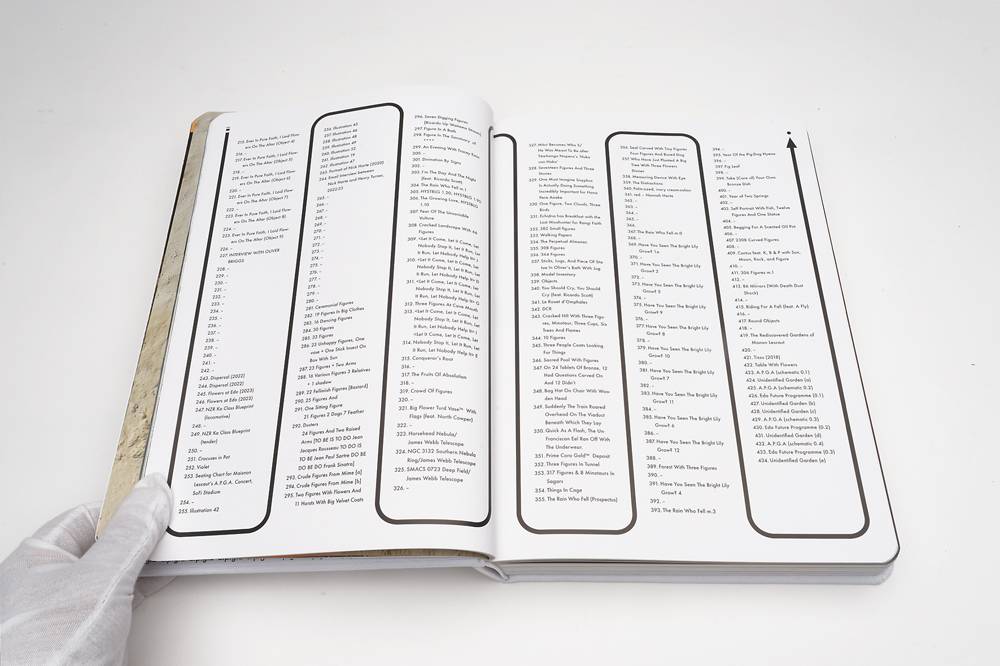 215. Ever In Pure Faith, I Laid Flow-
ers On The Altar (Object 4)
216. –
217. Ever In Pure Faith, I Laid Flow-
ers On The Altar (Object 5)
218. –
219. Ever In Pure Faith, I Laid Flow-
ers On The Altar (Object 6)
220. –
221. Ever In Pure Faith, I Laid Flow-
ers On The Altar (Object 7)
222. –
223. Ever In Pure Faith, I Laid Flow-
ers On The Altar (Object 8)
224. –
225. Ever In Pure Faith, I Laid Flow-
ers On The Altar (Object 9)
226. –
227. INTERVIEW WITH OLIVER
BRIGGS
228. –
229. –
230. –
231. –
232. –
233. –
234. –
235. –
236. –
237. –
238. –
239. –
240. –
241. –
242. –
243. Dispersal (2022)
244. Dispersal (2022)
245. Flowers at Edo (2023)
246. Flowers at Edo (2023)
247. NZR Ka Class Blueprint
(locomotive)
248. –
249. NZR Ka Class Blueprint
(tender)
250. –
251. Crocuses in Pot
252. Violet
253. Seating Chart for Maison
Lescaut's A.P.G.A. Concert,
SoFi Stadium
254. –
255. Illustration 42
256. Illustration 45
257. Illustration 46
258. Illustration 48
259. Illustration 49
260. Illustration 52
261. Illustration 19
262. Illustration 47
263. Portrait of Nick Harte (2022)
264. Email interview between
Nick Harte and Henry Turner,
2022/23
265. –
266. –
267. –
268. –
269. –
270. –
271. –
272. –
273. –
274. –
275. –
276. –
277. –
278. –
279. –
280. –
281. Ceremonial Figures
282. 19 Figures In Big Clothes
283. 16 Dancing Figures
284. 30 Figures
285. 33 Figures
286. 23 Unhappy Figures, One
vase + One Stick Insect On
Bow With Son
287. 23 Figures + Two Arms
288. 16 Various Figures 3 Relatives
+ 1 shadow
289. 22 Fellinish Figures [Bastard]
290. 25 Figures And
291. One Sitting Figure
21 Figures 2 Dogs 7 Feather
292. Dusters
24 Figures And Two Raised
Arms [TO BE IS TO DO Jean
Jacques Rousseau TO DO IS
TO BE Jean Paul Sartre DO BE
DO BE DO Frank Sinatra]
293. Crude Figures From Mime [a]
294. Crude Figures From Mime [b]
295. Two Figures With Flowers And
11 Hoists With Big Velvet Coats
296. Seven Digging Figures
(Ricardo Up Wantima Stream)
297. Figure In A Bath
298. Figure In The Sanctuary of
299. An Evening With Danny Rose
300. –
301. Divination By Signs
302. –
303. I'm The Day And The Night
(feat. Ricardo Scott)
304. The Rain Who Fell m.1
305. HYSTRELG 1.20, HYSTRELG 1.90
306. The Growing Love, HYSTRELG
1.10
307. Year Of The Unsuitable
Vulture
308. Cracked Landscape With 46
Figures
309. <Let It Come, Let It Come, Let
Nobody Stop It, Let It Run, Let
It Run, Let Nobody Help It>
310. <Let It Come, Let It Come, Let
Nobody Stop It, Let It Run, Let
It Run, Let Nobody Help It>
311. <Let It Come, Let It Come, Let
Nobody Stop It, Let It Run, Let
It Run, Let Nobody Help It>
312. Three Figures At Cave Mouth
313. <Let It Come, Let It Come, Let
Nobody Stop It, Let It Run, Let
It Run, Let Nobody Help It>
314. Nobody Stop It, Let It Run, Let
It Run, Let Nobody Help It
315. Conqueror's Root
316. –
317. The Fruits Of Absolutism
318. –
319. Crowd Of Figures
320. –
321. Big Flower Turd Vase™ With
Flags (feat. North Cowper)
322. –
323. Horsehead Nebula/
James Webb Telescope
324. NGC 3132 Southern Nebula
Ring/James Webb Telescope
325. SMACS 0723 Deep Field/
James Webb Telescope
326. –
328. Seventeen Figures And Three
Stones
329. One Must Imagine Sisyphus
Is Actually Doing Something
Incredibly Important for Hans
Hans Anake
330. One Figure, Two Clouds, Three
Birds
331. Echidna has Breakfast with the
Lost Manhunter for Rangi Faith
332. 382 Small figures
333. Walking Papers
334. The Perpetual Almanac
335. 308 Figures
336. 344 Figures
337. Sticks, Logs, And Piece Of Sto
Ice In Oliver's Bath With Jug
338. Model Inventory
339. Objects
340. You Should Cry, You Should
Cry (feat. Ricardo Scott)
341. Le Rouet d'Omphales
342. DCR
343. Cracked Hill With Three Figu-
res, Minotaur, Three Cups, Six
Trees And Flames
344. 10 Figures
345. Three People Casts Looking
For Things
346. Sacred Pool With Figures
347. On 24 Tablets Of Bronze, 12
Had Questions Carved On
And 12 Didn't
348. Bag Hat On Chair With Woo
den Head
349. Suddenly The Train Roared
Overhead On The Viaduct
Beneath Which They Lay
350. Quick As A Flash, The Un
Franciscan Eel Ran Off With
The Underwear
351. Prime Cora Gold™ Deposit
352. Three Figures In Tunnel
353. 317 Figures & 8 Minotaurs In
Sagara
354. Things In Cage
355. The Rain Who Fell (Prospectus)
356. Seal Carved With Tiny Figures
Four Figures And Buried Dog
357. Who Have Just Planted A Big
Tree With Three Flowers
Dinner
358. Measuring Device With Eye
359. The Distractions
360. Palm-sized, ivory cream-colou
361. red – Hannah Harte
362. –
363. –
364. –
365. –
366. –
367. The Rain Who Fell m.0
368. –
369. Have You Seen The Bright Lily
Grow? 1a
370. –
371. Have You Seen The Bright Lily
Grow? 2
372. –
373. Have You Seen The Bright Lily
Grow? 5
374. –
375. Have You Seen The Bright Lily
Grow? 9
376. –
377. Have You Seen The Bright Lily
Grow? 8
378. –
379. Have You Seen The Bright Lily
Grow? 10
380. –
381. Have You Seen The Bright Lily
Grow? 7
382. –
383. Have You Seen The Bright Lily
Grow? 11
384. –
385. Have You Seen The Bright Lily
Grow? 6
386. –
387. Have You Seen The Bright Lily
Grow? 12
388. –
389. Forest With Three Figures
390. –
391. Have You Seen The Bright Lily
Grow? 4
392. –
393. The Rain Who Fell m.3
394. –
395. Year Of the Pig-Dog Hyena
396. –
397. Fig Leaf
398. –
399. Take (Care of) Your Own
Bronze Dish
400. –
401. Year of Two Springs
402. –
403. Self Portrait With Fish, Twelve
Figures And One Statue
404. –
405. Begging For A Scented Oil Pot
406. –
407. 2308 Carved Figures
408. –
409. Cactus feat. K, B & P with Sun,
Moon, Rock, and Figure
410. –
411. 306 Figures m.1
412. –
413. 86 Mirrors (With Death Dust
Shock)
414. –
415. Riding For A Fall (feat. A. Fly)
416. –
417. Round Objects
418. –
419. The Rediscovered Gardens of
Manon Lescaut
420. –
421. Tisza (2018)
422. Table With Flowers
423. A.P.G.A (schematic 0.1)
424. Unidentified Garden (a)
425. A.P.G.A (schematic 0.2)
426. Edo Future Programme (0.1)
427. Unidentified Garden (b)
428. Unidentified Garden (c)
429. A.P.G.A (schematic 0.3)
430. Edo Future Programme (0.2)
431. Unidentified Garden (d)
432. A.P.G.A (schematic 0.4)
433. Edo Future Programme (0.3)
434. Unidentified Garden (e)